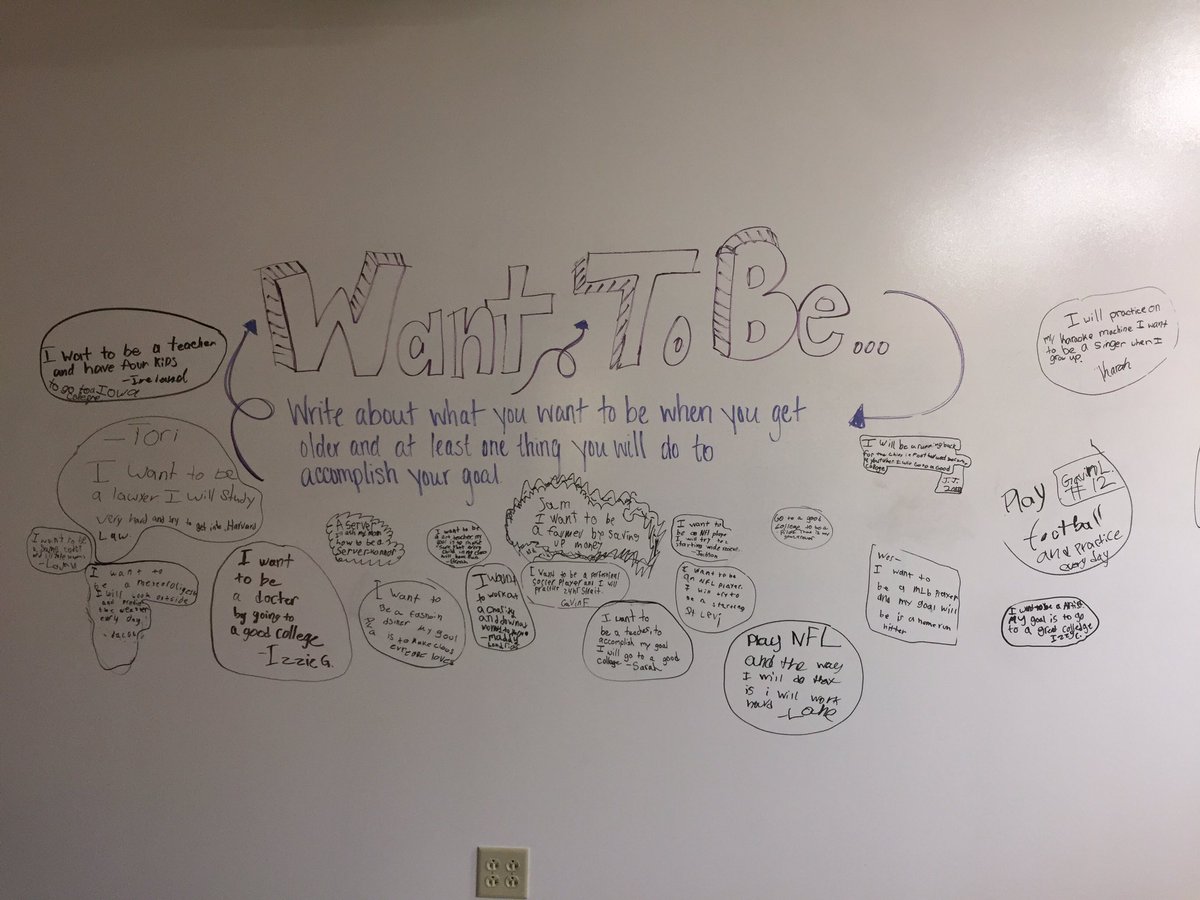 Want To Be...
Write about what you want to be when you get
older and at least one thing you will do to
accomplish your goal.
I wat to be a teacher
and have four kids
-Ireland
to go to a Iowa
-Tori
I want to be
a lawyer I will study
very hard and try to get into Harvard
Law.
I want to
be a
I will look outside
and predict
the weather
every day.
I want
to be
a docter
by going to
a good college
-Izzie G.
A Server
how to be a
Server
I want to
Be a fashoin
my goul
is to make clous
love
I want to be
make
I want
to work at
a charity
and
-maddy
Sam
I want to be
a farmer by saving
up money
I want to be a
soccer player and I will
practice 24hr strait.
Gavin F.
I want to
be a teacher, to
accomplish my goal
I will go to a good
college -Sarah
I want to
be an NFL player
I will try to
starting wide
I want to be
an NFL player.
I will try to
be a starting
Levi
Go to a good
college to be a
Play NFL
and the way
I will do that
is i will work
hard
-Lane
I will be a running back
for the
college
J.J.
Wes-
I want to
be a MLB player
and my goal will
be is a home run
hitter
I will practice on
my karaoke machine I want
to be a singer when I
grow up.
Gavin L.
#12
Play
football
and practice
every day
I want to be a Artist
my goal is to go
to a great colledge
Izzy C.